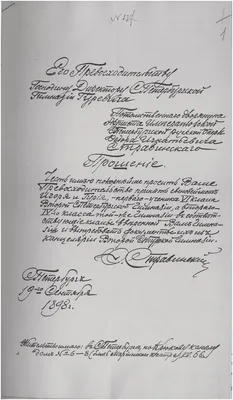 Его Превосходительству
Господину Директору С.Петербургской
Гимназии Гуревича
Потомственного дворянина
Артиста Императорской
С.Петербургской русской Оперы
Федора Игнатьевича
Стравинскаго
Прошенiе.
Честь имею покорнейше просить Ваше
Превосходительство принять сыновей моих
Игоря и Гурiя, – первого – ученика VI класса
Второй С.Петербургской Гимназiи, а второго –
IV-го класса той-же Гимназiи в соответ-
ствующiе классы вверенной Вам Гимна-
зiи и вытребовать документы их из
канцелярiи Второй Гимназiи.
Ф. Стравинский
С.Петербург
19-го Сентября
1898 г.
Жительство имею: в С.Петербурге, по Крюкову каналу
дом № 6–8 кв. 66.